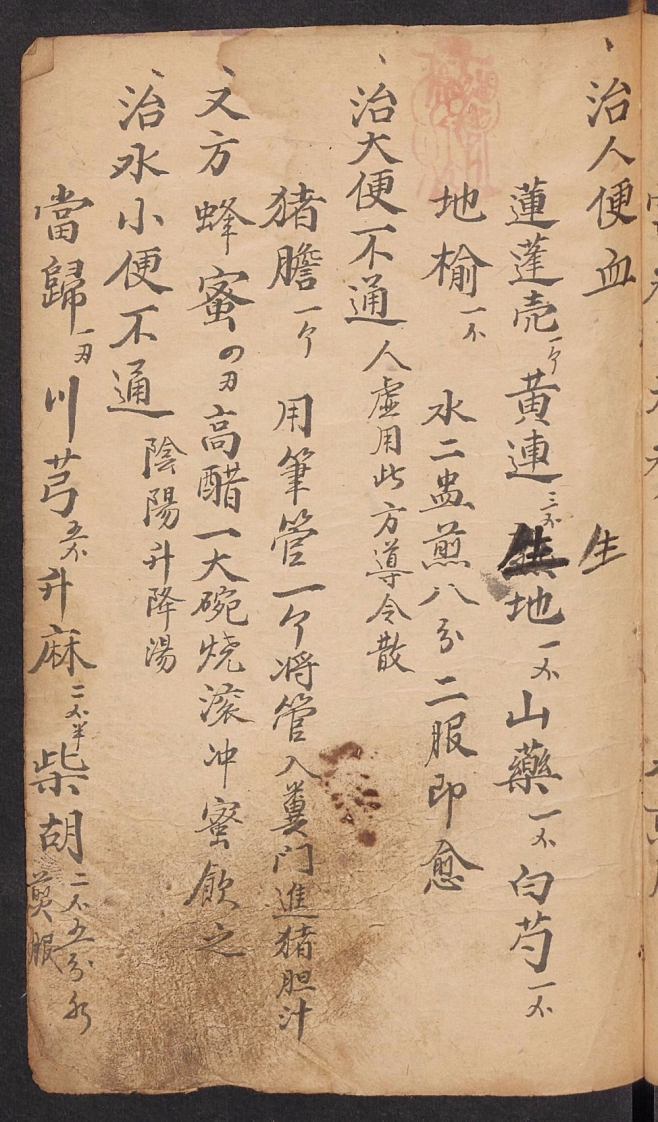 、治人便血
蓮蓬壳一个黄連三不生地一不山藥一不白芍一不
地榆一不 水二盅煎八分二服即愈
、治大便不通人虚用此方導令散
猪膽一个 用筆管一个将管入糞门進猪胆汁
、又方 蜂蜜四刃高醋一大碗烧滚冲蜜飲之
、治水小便不通 陰陽升降湯
當歸一刃川芎五不升麻二不半柴胡二不五分水
煎服